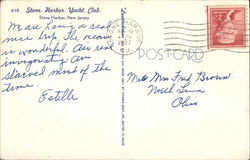 110 Stone Harbor Yacht Club
Stone Harbor, New Jersey
POST CARD
nice trip. The ocean
is wonderful. Air real
invigorating. Am
starved most of the
time.
Estelle
Mr & Mrs Fred Brown
North Lima
Ohio